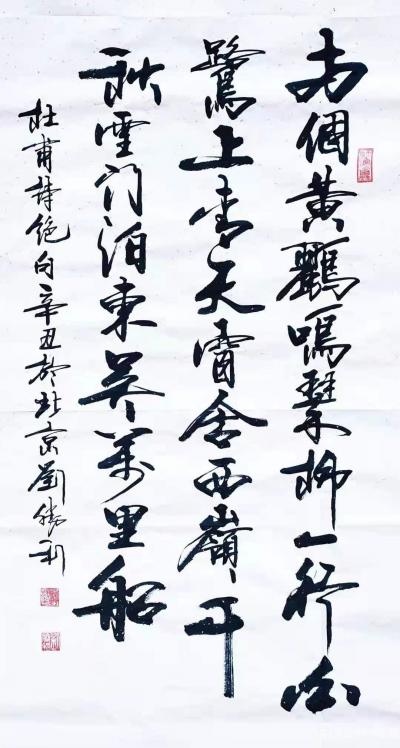 两個黃鸝鳴翠柳一行白
鷺上青天窗含西嶺千
秋雪门泊東吴萬里船
杜甫詩絕句辛丑於北京劉勝利